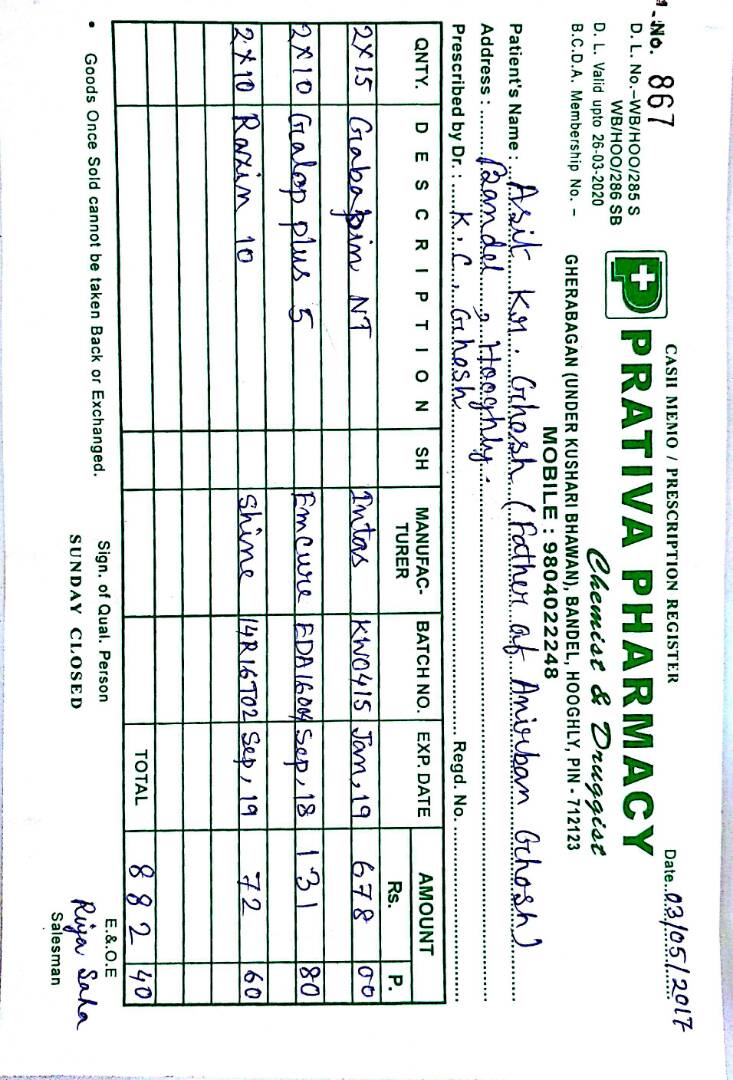 No. 867
CASH MEMO / PRESCRIPTION REGISTER
Date..03/05/2017
D. L. No.–WB/HOO/285 S
WB/HOO/286 SB
D. L. Valid upto 26-03-2020
B.C.D.A. Membership No. –
PRATIVA PHARMACY
Chemist & Druggist
GHERABAGAN (UNDER KUSHARI BHAWAN), BANDEL, HOOGHLY, PIN - 712123
MOBILE : 9804022248
Patient's Name : Asit Kr. Ghosh (Father of Anirban Ghosh)
Address : Bandel, Hooghly.
Prescribed by Dr. : K. C. Ghosh Regd. No.
QNTY. DESCRIPTION SH MANUFAC-TURER BATCH NO. EXP. DATE AMOUNT Rs. P.
2X15 Gabapin NT Intas KW0415 Jan, 19 678 00
2X10 Galop plus 5 Emcure EDA16004 Sep, 18 131 80
2X10 Razin 10 Shine 14R16T02 Sep, 19 72 60
TOTAL 882 40
• Goods Once Sold cannot be taken Back or Exchanged.
Sign. of Qual. Person
SUNDAY CLOSED
E.&.O.E
Riya Saha
Salesman